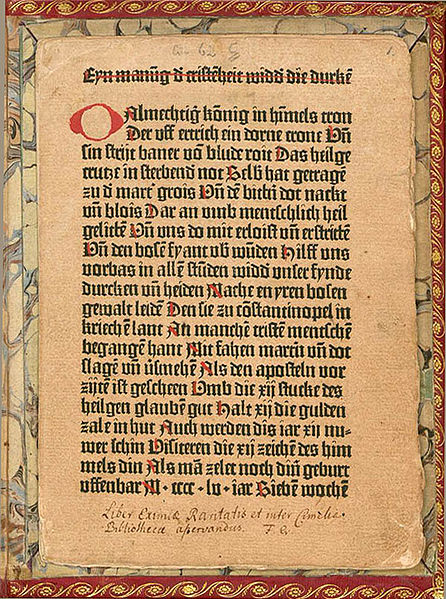 Eyn manũg d̕ cristẽheit widd̕ die durkẽ
O Almechtig kõnig in hĩmels tron
Der uff ertrich ein dorne crone Uñ
sin strijt baner võ blude roit Das heilge
crutze in sterbend not Selb hat getragẽ
zu d̕ mart̕ grois Uñ dẽ bittñ dot nackt
uñ blois Dar an umb mentschlich heil
gelittẽ Uñ uns do mit erloist uñ erstrittẽ
Uñ den bosẽ fyant ub̕wũden Hilff uns
vorbas in allẽ stũden widd̕ unser fynde
durcken uñ heiden Mache en yren bosen
gewalt leidẽ Den sie zu cõstantinopel in
kriechẽ lant An manchẽ cristẽ mentschẽ
begangẽ hant Mit fahen martñ uñ dot
slagẽ uñ v̕smehẽ Als den aposteln vor
zijtẽ ist gescheen Umb die xij stucke des
heilgen glaubẽ gut Halt xij die gulden
zale in hut Auch werden dis iar xij nu-
wer schin Visiteren die xij zeichẽ des him
mels din Als mã zelet noch diñ geburt
uffenbar M · cccc · lv · iar Siebẽ wochẽ
Liber Eximiæ Raritatis et inter Cimelia
Bibliothecæ asservandus. F. G.